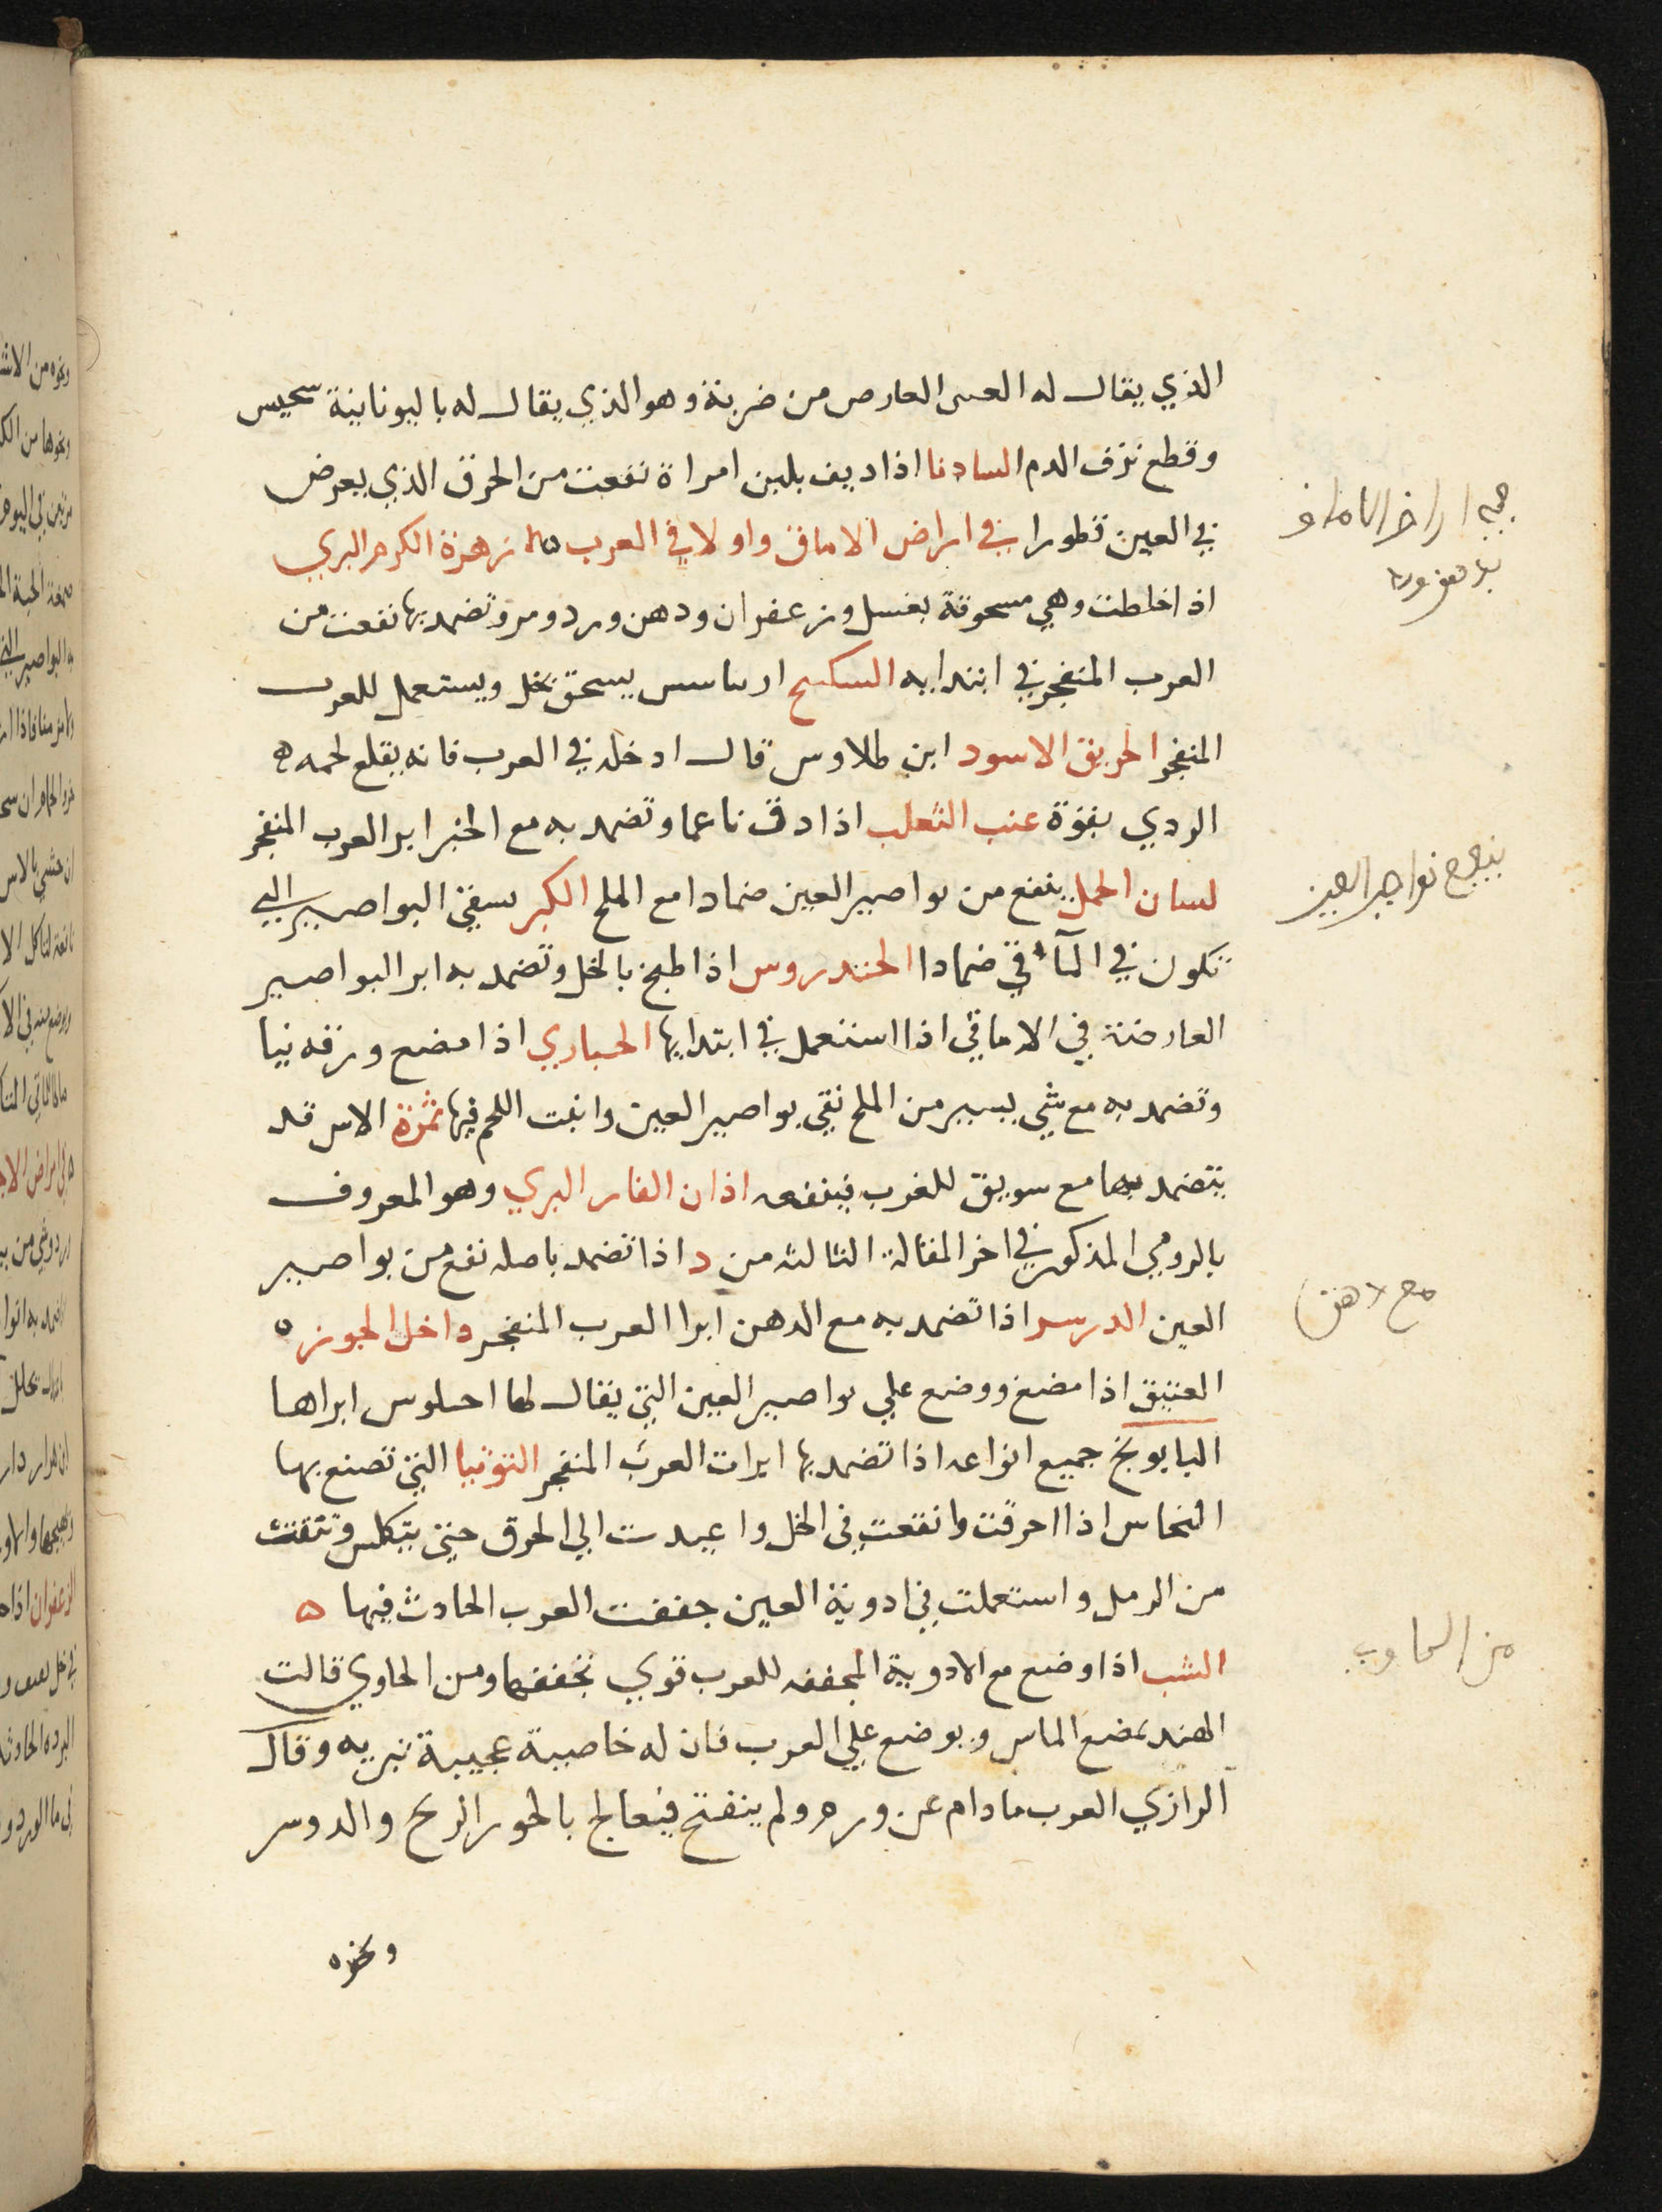 الذي يقال له العسى العارص من ضربة وهو الذي يقال له باليونانية سحيس
وقطع نزف الدم السادنا اذا ديف بلبن امراة نفعت من الحرق الذي يعرض
في العين قطورا في امراض الاماق واولا في العرب ه زهرة الكرم البري
اذا خلطت وهي مسحوقة بعسل وزعفران ودهن ورد ومر وتضمد بها نفعت من
العرب المنفجر في ابتدايه السكسح ارساسس يسحق بخل ويستعمل للعرب
المنفجر الخربق الاسود ابن طلاوس قال ادخله في العرب فانه يقلع لحمه
الردي بقوة عنب الثعلب اذا دق ناعما وتضمد به مع الخبز ابر العرب المنفجر
لسان الحمل ينفع من بواصير العين ضمادا مع الملح الكبر يسفي البواصير التي
تكون في المآقي ضمادا الحندروس اذا طبخ بالخل وتضمد به ابر البواصير
العارضة في الاماقي اذا استعمل في ابتدايها الخباري اذا مضع ورقه نيا
وتضمد به مع شي يسير من الملح نقي بواصير العين وانبت اللحم فيها ثمرة الاس قد
يتضمد بها مع سويق للغرب فينفعه اذان الفار البري وهو المعروف
بالرومي المذكور في اخر المقالة الثالثه من د اذا تضمد باصله نفع من بواصير
العين الدرسر اذا تضمد به مع الدهن ابرا العرب المنفجر داخل الجوز ه
العتيق اذا مضغ ووضع علي بواصير العين التي يقال لها احىلوس ابراها
البابونج جميع انواعه اذا تضمد بها ابرات العرب المنفجر التوتيا التي تصنع بها
النحاس اذا احرقت وانقعت في الخل واعيدت الي الحرق حتي يتكلس وتنقت
من الرمل واستعملت في ادوية العين جففت العرب الحادث فيها ه
الشب اذا وضع مع الادوية المجففه للعرب قوي تجففها ومن الحاوي قالت
الهند تمضع الماس ويوضع علي العرب فان له خاصية عجيبة تبريه وقال
الرازي العرب ما دام عن وره ولم ينفتح فيعالج بالحور الرىح والدوسر
ونحوه
من الحاوي